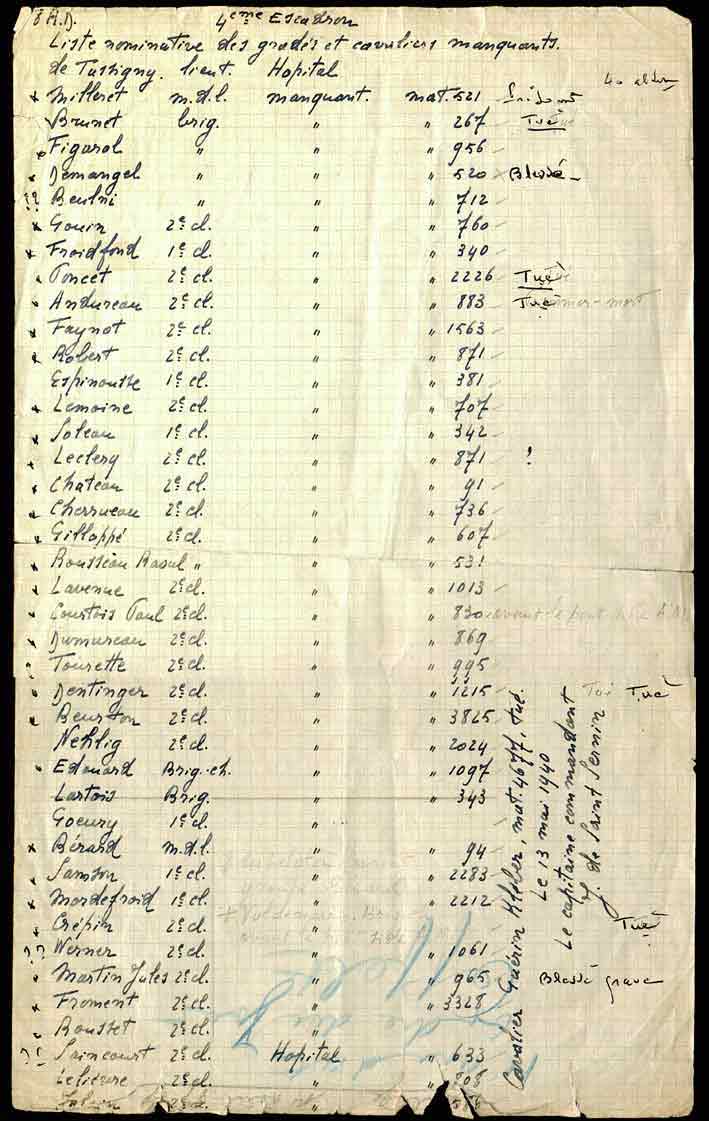 8 R.D. 4eme Escadron
Liste nominative des gradés et cavaliers manquants.
de Tassigny. lieut. Hopital
x Milleret m.d.l. manquant. mat. 521
Brunet brig. " " 267 Tué
Figarol " " " 956
x Demangel " " " 520 Blessé
?? Beulni " " " 712
x Gouin 2e cl. " " 760
x Froidfond 1e cl. " " 340
Poncet 2e cl. " " 2226 Tué
x Andureau 2e cl. " " 883 Tué
x Faynot 2e cl. " " 1563
x Robert 2e cl. " " 871
Espinousse 1e cl. " " 381
x Lemoine 2e cl. " " 707
x Soleau 1e cl. " " 342
x Leclerq 2e cl. " " 871 !
x Chateau 2e cl. " " 91
x Cherrueau 2e cl. " " 736
x Gilloppé 2e cl. " " 607
x Rousseau Raoul " " " 531
x Lavenue 2e cl. " " 1013
x Courtois Paul 2e cl. " " 830 avant le pont
x Dumureau 2e cl. " " 869
? Tourette 2e cl. " " 995
Dentinger 2e cl. " " 1215 Tué
x Beurton 2e cl. " " 3825
Nehlig 2e cl. " " 2024
Edouard Brig.ch. " " 1097
Lartois Brig. " " 343
Goeury 1e cl. "
x Bérard m.d.l. " " 94
x Samson 1e cl. " " 2283
x Mordefroid 1e cl. " " 2212
x Crépin 2e cl. " Tué
?? Werner 2e cl. " " 1061
Martin Jules 2e cl. " " 965 Blessé grave
x Froment 2e cl. " " 3328
Rousset 2e cl. "
?? Saincourt 2e cl. Hopital " 633
Lelièvre 2e cl. " " 808
Cavalier Guérin Kléber, mat. 4677, tué.
Le 13 mai 1940
Le capitaine commandant
J. de Saint Sernin